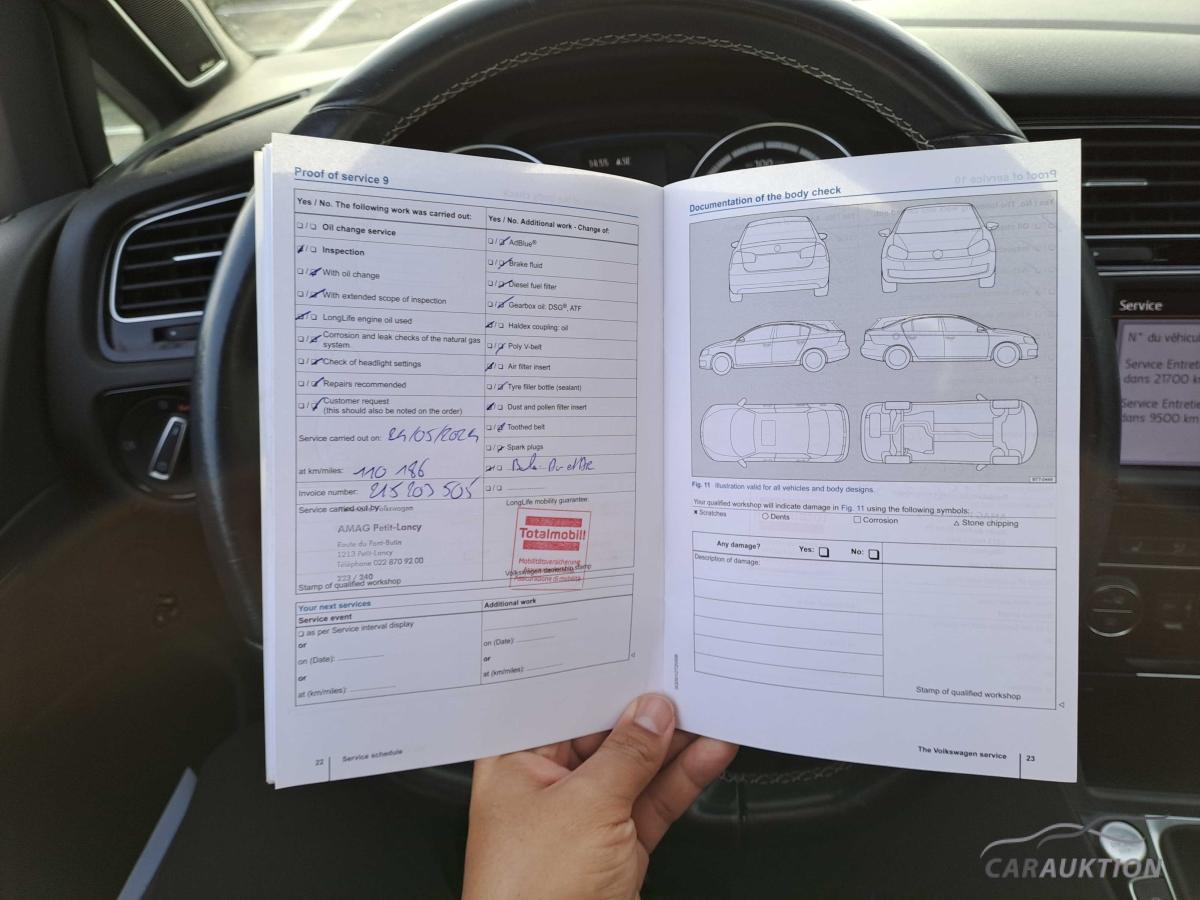 Proof of service 9
Yes / No. The following work was carried out:
☐ / ☐ Oil change service
☑ / ☐ Inspection
☐ / ☑ With oil change
☐ / ☑ With extended scope of inspection
☑ / ☐ LongLife engine oil used
☐ / ☑ Corrosion and leak checks of the natural gas
system
☐ / ☑ Check of headlight settings
☐ / ☑ Repairs recommended
☐ / ☑ Customer request
(this should also be noted on the order)
Service carried out on: 24/05/2024
at km/miles: 110 186
Invoice number: 215203 505
Service carried out by
Volkswagen
AMAG Petit-Lancy
Route du Pont-Butin
1213 Petit-Lancy
Téléphone 022 870 92 00
223 / 240
Stamp of qualified workshop
Yes / No. Additional work - Change of:
☐ / ☑ AdBlue®
☐ / ☑ Brake fluid
☐ / ☑ Diesel fuel filter
☐ / ☑ Gearbox oil: DSG®, ATF
☑ / ☐ Haldex coupling: oil
☐ / ☑ Poly V-belt
☑ / ☐ Air filter insert
☐ / ☑ Tyre filler bottle (sealant)
☑ / ☐ Dust and pollen filter insert
☐ / ☑ Toothed belt
☐ / ☑ Spark plugs
☑ / ☐
☐ / ☐
LongLife mobility guarantee:
Totalmobil!
Mobilitätsversicherung
Assurance mobilité
Assicurazione di mobilità
Volkswagen dealership stamp
Your next services
Service event
☐ as per Service interval display
or
on (Date):
or
at (km/miles):
Additional work
on (Date):
or
at (km/miles):
22 Service schedule
Documentation of the body check
BTT-0446
Fig. 11 Illustration valid for all vehicles and body designs.
Your qualified workshop will indicate damage in Fig. 11 using the following symbols:
× Scratches ○ Dents □ Corrosion △ Stone chipping
Any damage? Yes: ☐ No: ☐
Description of damage:
Stamp of qualified workshop
The Volkswagen service 23
Service
N° du véhicul
Service Entretie
dans 21700 k
Service Entretie
dans 9500 km
100
CARAUKTION